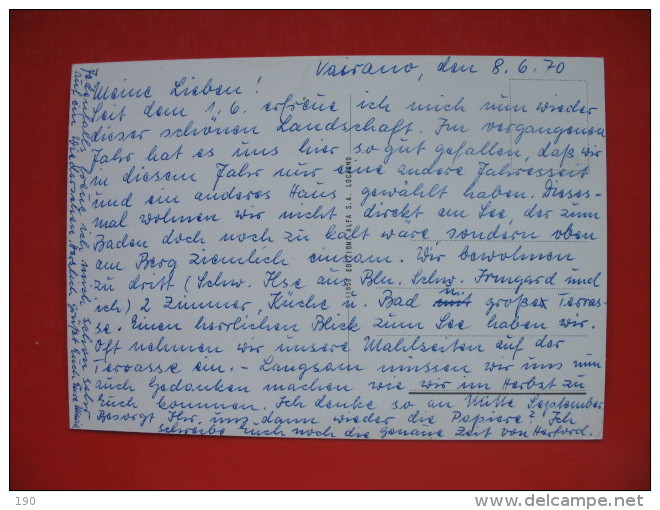 Vairano, den 8.6.70
Meine Lieben!
Seit dem 1.6. erfreue ich mich nun wieder
dieser schönen Landschaft. Im vergangenen
Jahr hat es uns hier so gut gefallen, daß wir
in diesem Jahr nur eine andere Jahreszeit
und ein anderes Haus gewählt haben. Dieses-
mal wohnen wir nicht direkt am See, der zum
Baden doch noch zu kalt wäre, sondern oben
am Berg ziemlich einsam. Wir bewohnen
zu dritt (Schw. Ilse aus Bln. Schw. Irmgard und
ich) 2 Zimmer, Küche u. Bad u. große Terras-
se. Einen herrlichen Blick zum See haben wir.
Oft nehmen wir unsere Mahlzeiten auf der
Terrasse ein. - Langsam müssen wir uns nun
auch Gedanken machen wie wir im Herbst zu
Euch kommen. Ich denke so an Mitte September
Besorgt Ihr uns dann wieder die Papiere? Ich
schreibe Euch noch die genaue Zeit von Herford.
Jedenfalls freue ich mich schon sehr
auf ein Wiedersehen. Herzlich grüßt Euch Eure
EDITION ALFA S.A. LOCARNO
190
delcampe.net